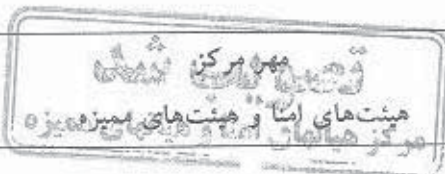 مهر مرکز
شد
هیئت‌های امنا و هیئت‌های ممیزه
مرکز هیأتهای امنا و هیأتهای ممیزه